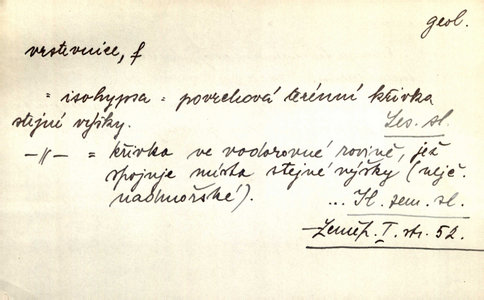 geol.
vrstevnice, f
= isohypsa = povrchová terénní křivka
stejné výšky. Les. sl.
–〃– = křivka ve vodorovné rovině, jež
spojuje místa stejné výšky (nejč.
nadmořské). ... Kl. zem. sl.
Zeměp. I. str. 52.